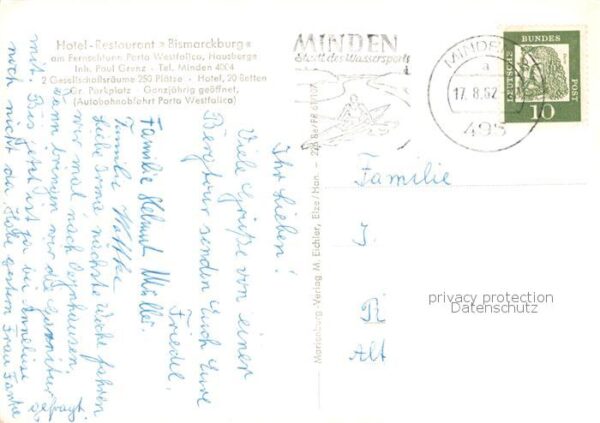 Hotel-Restaurant »Bismarckburg«
am Fernsehturm Porta Westfalica, Hausberge
Inh. Paul Grenz - Tel. Minden 4004
2 Gesellschaftsräume 250 Plätze - Hotel, 20 Betten
Gr. Parkplatz - Ganzjährig geöffnet,
(Autobahnabfahrt Porta Westfalica)
MINDEN
Stadt des Wassersports
MINDEN
a
17.8.62
495
DEUTSCHE BUNDESPOST
10
Marienburg-Verlag M. Eichler, Elze/Han. -
Ihr Lieben!
Viele Grüße von einer
Bergtour senden Euch Eure
Friedel,
Familie Helmut Müller.
Familie
Liebe Irma, nächste Woche fahren
wir mal nach Oeynhausen,
dann bringen wir die Garnitur
mit. Bis jetzt ist sie bei
noch nicht da. Habe gestern Frau
gefragt.
Familie
J.
R
Alt
privacy protection
Datenschutz